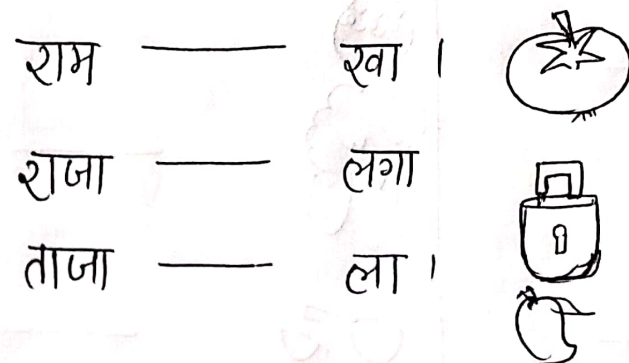 राम ______ खा ।
राजा ______ लगा
ताजा ______ ला ।